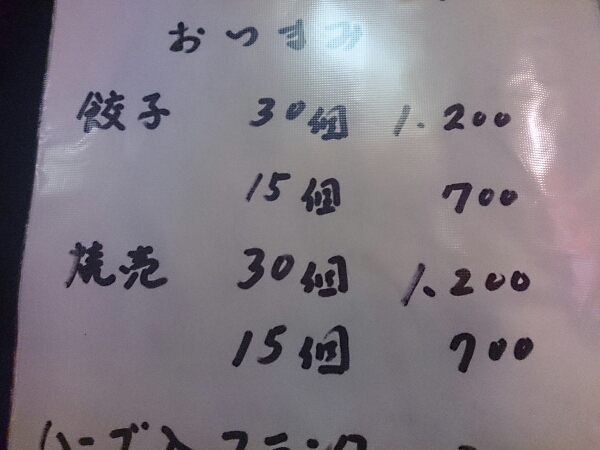 おつまみ
餃子 30個 1.200
15個 700
焼売 30個 1.200
15個 700
ハーブ入フランク